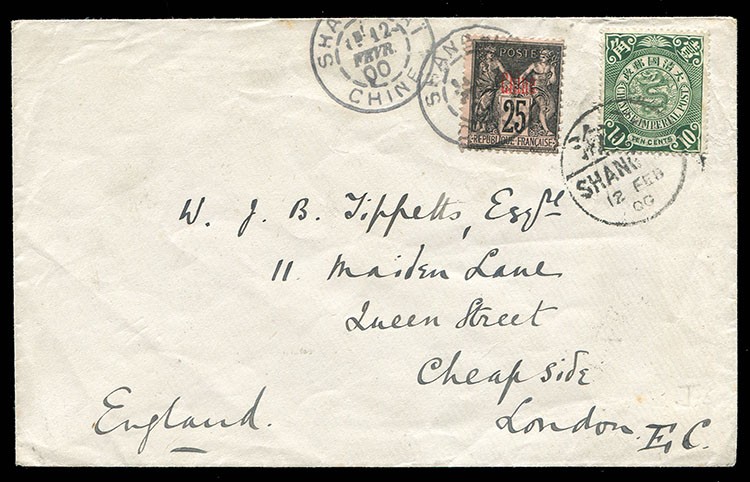 SHA
12
FEVR.
00
CHINE
SHANG
POSTE
Chine
25
REPUBLIQUE FRANÇAISE
角 壹
政郵國清大
CHINESE IMPERIAL POST
10 TEN CENTS 10
SHANG
12 FEB
00
W. J. B. Tippetts, Esqre
11 Maiden Lane
Queen Street
Cheapside
London. E.C.
England.